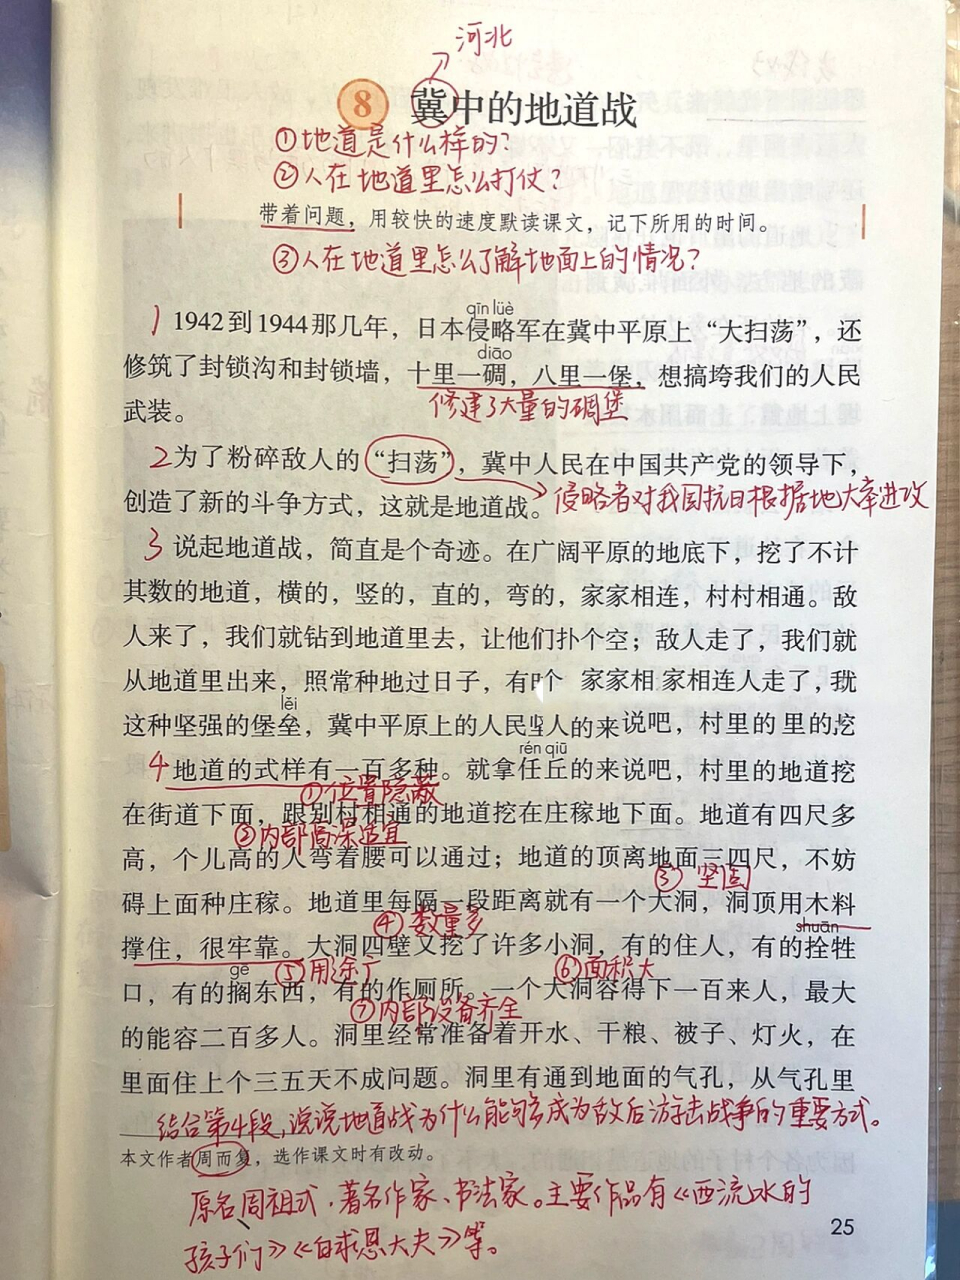 河北
8 冀中的地道战
①地道是什么样的？
②人在地道里怎么打仗？
带着问题，用较快的速度默读课文，记下所用的时间。
③人在地道里怎么了解地面上的情况？
qīn lüè
1 1942到1944那几年，日本侵略军在冀中平原上“大扫荡”，还
diāo
修筑了封锁沟和封锁墙，十里一碉，八里一堡，想搞垮我们的人民
修建了大量的碉堡
武装。
2 为了粉碎敌人的“扫荡”，冀中人民在中国共产党的领导下，
创造了新的斗争方式，这就是地道战。
侵略者对我国抗日根据地大举进攻
3 说起地道战，简直是个奇迹。在广阔平原的地底下，挖了不计
其数的地道，横的，竖的，直的，弯的，家家相连，村村相通。敌
人来了，我们就钻到地道里去，让他们扑个空；敌人走了，我们就
从地道里出来，照常种地过日子，有 个 家家相 家相连人走了，我
lěi
这种坚强的堡垒，冀中平原上的人民 人的来说吧，村里的 里的挖
rén qiū
4 地道的式样有一百多种。就拿任丘的来说吧，村里的地道挖
①位置隐蔽
在街道下面，跟别村相通的地道挖在庄稼地下面。地道有四尺多
②内部高深适宜
高，个儿高的人弯着腰可以通过；地道的顶离地面三四尺，不妨
③坚固
碍上面种庄稼。地道里每隔一段距离就有一个大洞，洞顶用木料
④数量多
shuān
撑住，很牢靠。大洞四壁又挖了许多小洞，有的住人，有的拴牲
gē
⑤用途广
⑥面积大
口，有的搁东西，有的作厕所。一个大洞容得下一百来人，最大
⑦内部设备齐全
的能容二百多人。洞里经常准备着开水、干粮、被子、灯火，在
里面住上个三五天不成问题。洞里有通到地面的气孔，从气孔里
结合第4段，说说地道战为什么能够成为敌后游击战争的重要方式。
本文作者周而复，选作课文时有改动。
原名周祖式，著名作家、书法家。主要作品有《西流水的
孩子们》《白求恩大夫》等。
25